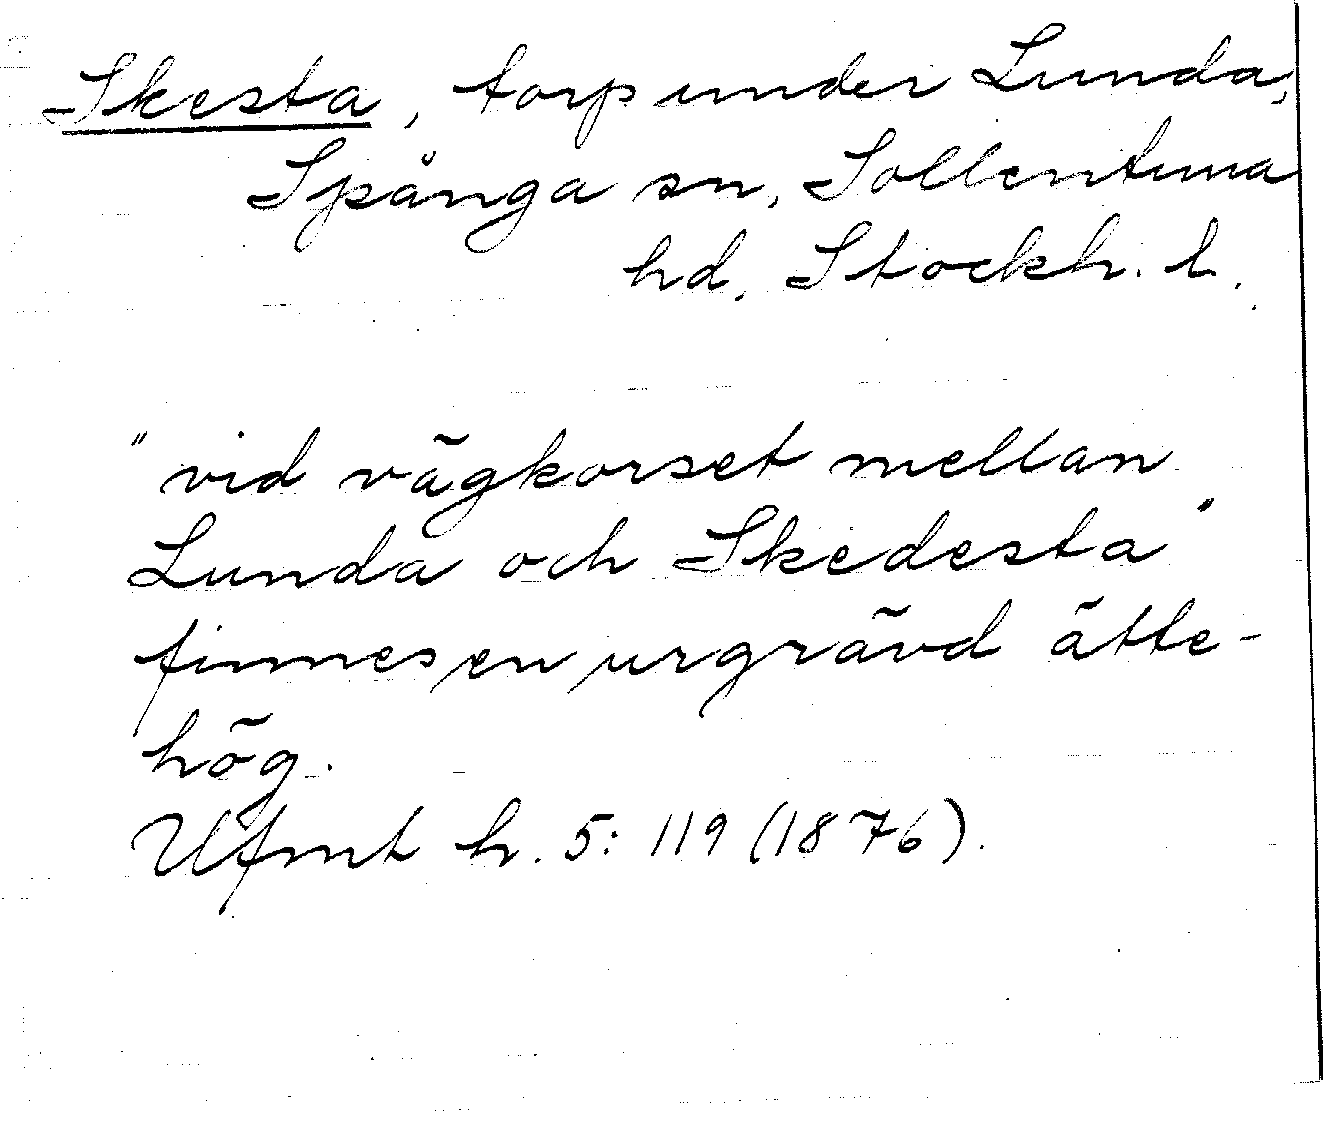 Skesta, torp under Lunda,
Spånga sn, Sollentuna
hd, Stockh. l.
"vid vägkorset mellan
Lunda och Skedesta"
finnes en urgrävd ätte-
hög.
Ufmt h. 5: 119 (1876).